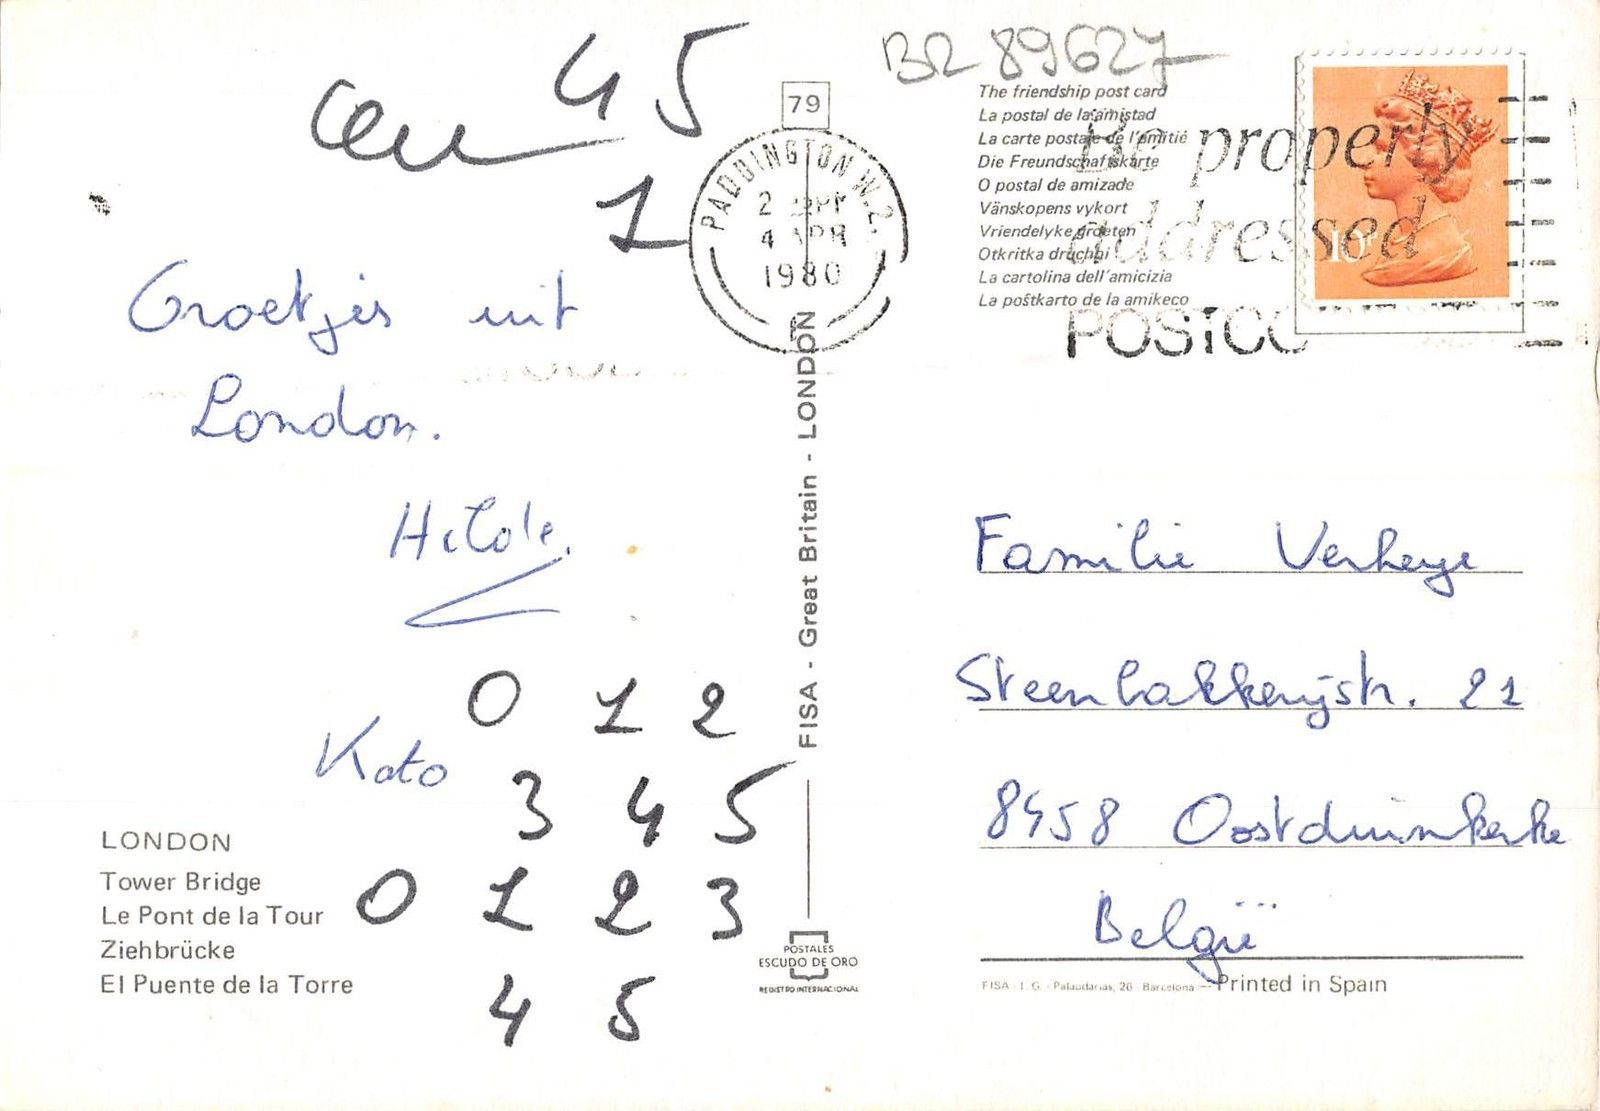 45
1
Groetjes uit
London.
Hilde
0 1 2
Kato
3 4 5
0 1 2 3
4 5
LONDON
Tower Bridge
Le Pont de la Tour
Ziehbrücke
El Puente de la Torre
79
PADDINGTON W.2.
2
4 APR
1980
FISA - Great Britain - LONDON
POSTALES
ESCUDO DE ORO
REGISTRO INTERNACIONAL
BR 89627
The friendship post card
La postal de la amistad
La carte postale de l'amitié
Die Freundschaftskarte
O postal de amizade
Vänskopens vykort
Vriendelyke groeten
Otkritka druchbi
La cartolina dell'amicizia
La poŝtkarto de la amikeco
Be properly
addressed
10P
Familie Verheye
Steenbakkerijstr. 21
8458 Oostduinkerke
België
FISA - I. G. - Palaudarias, 26 - Barcelona - Printed in Spain